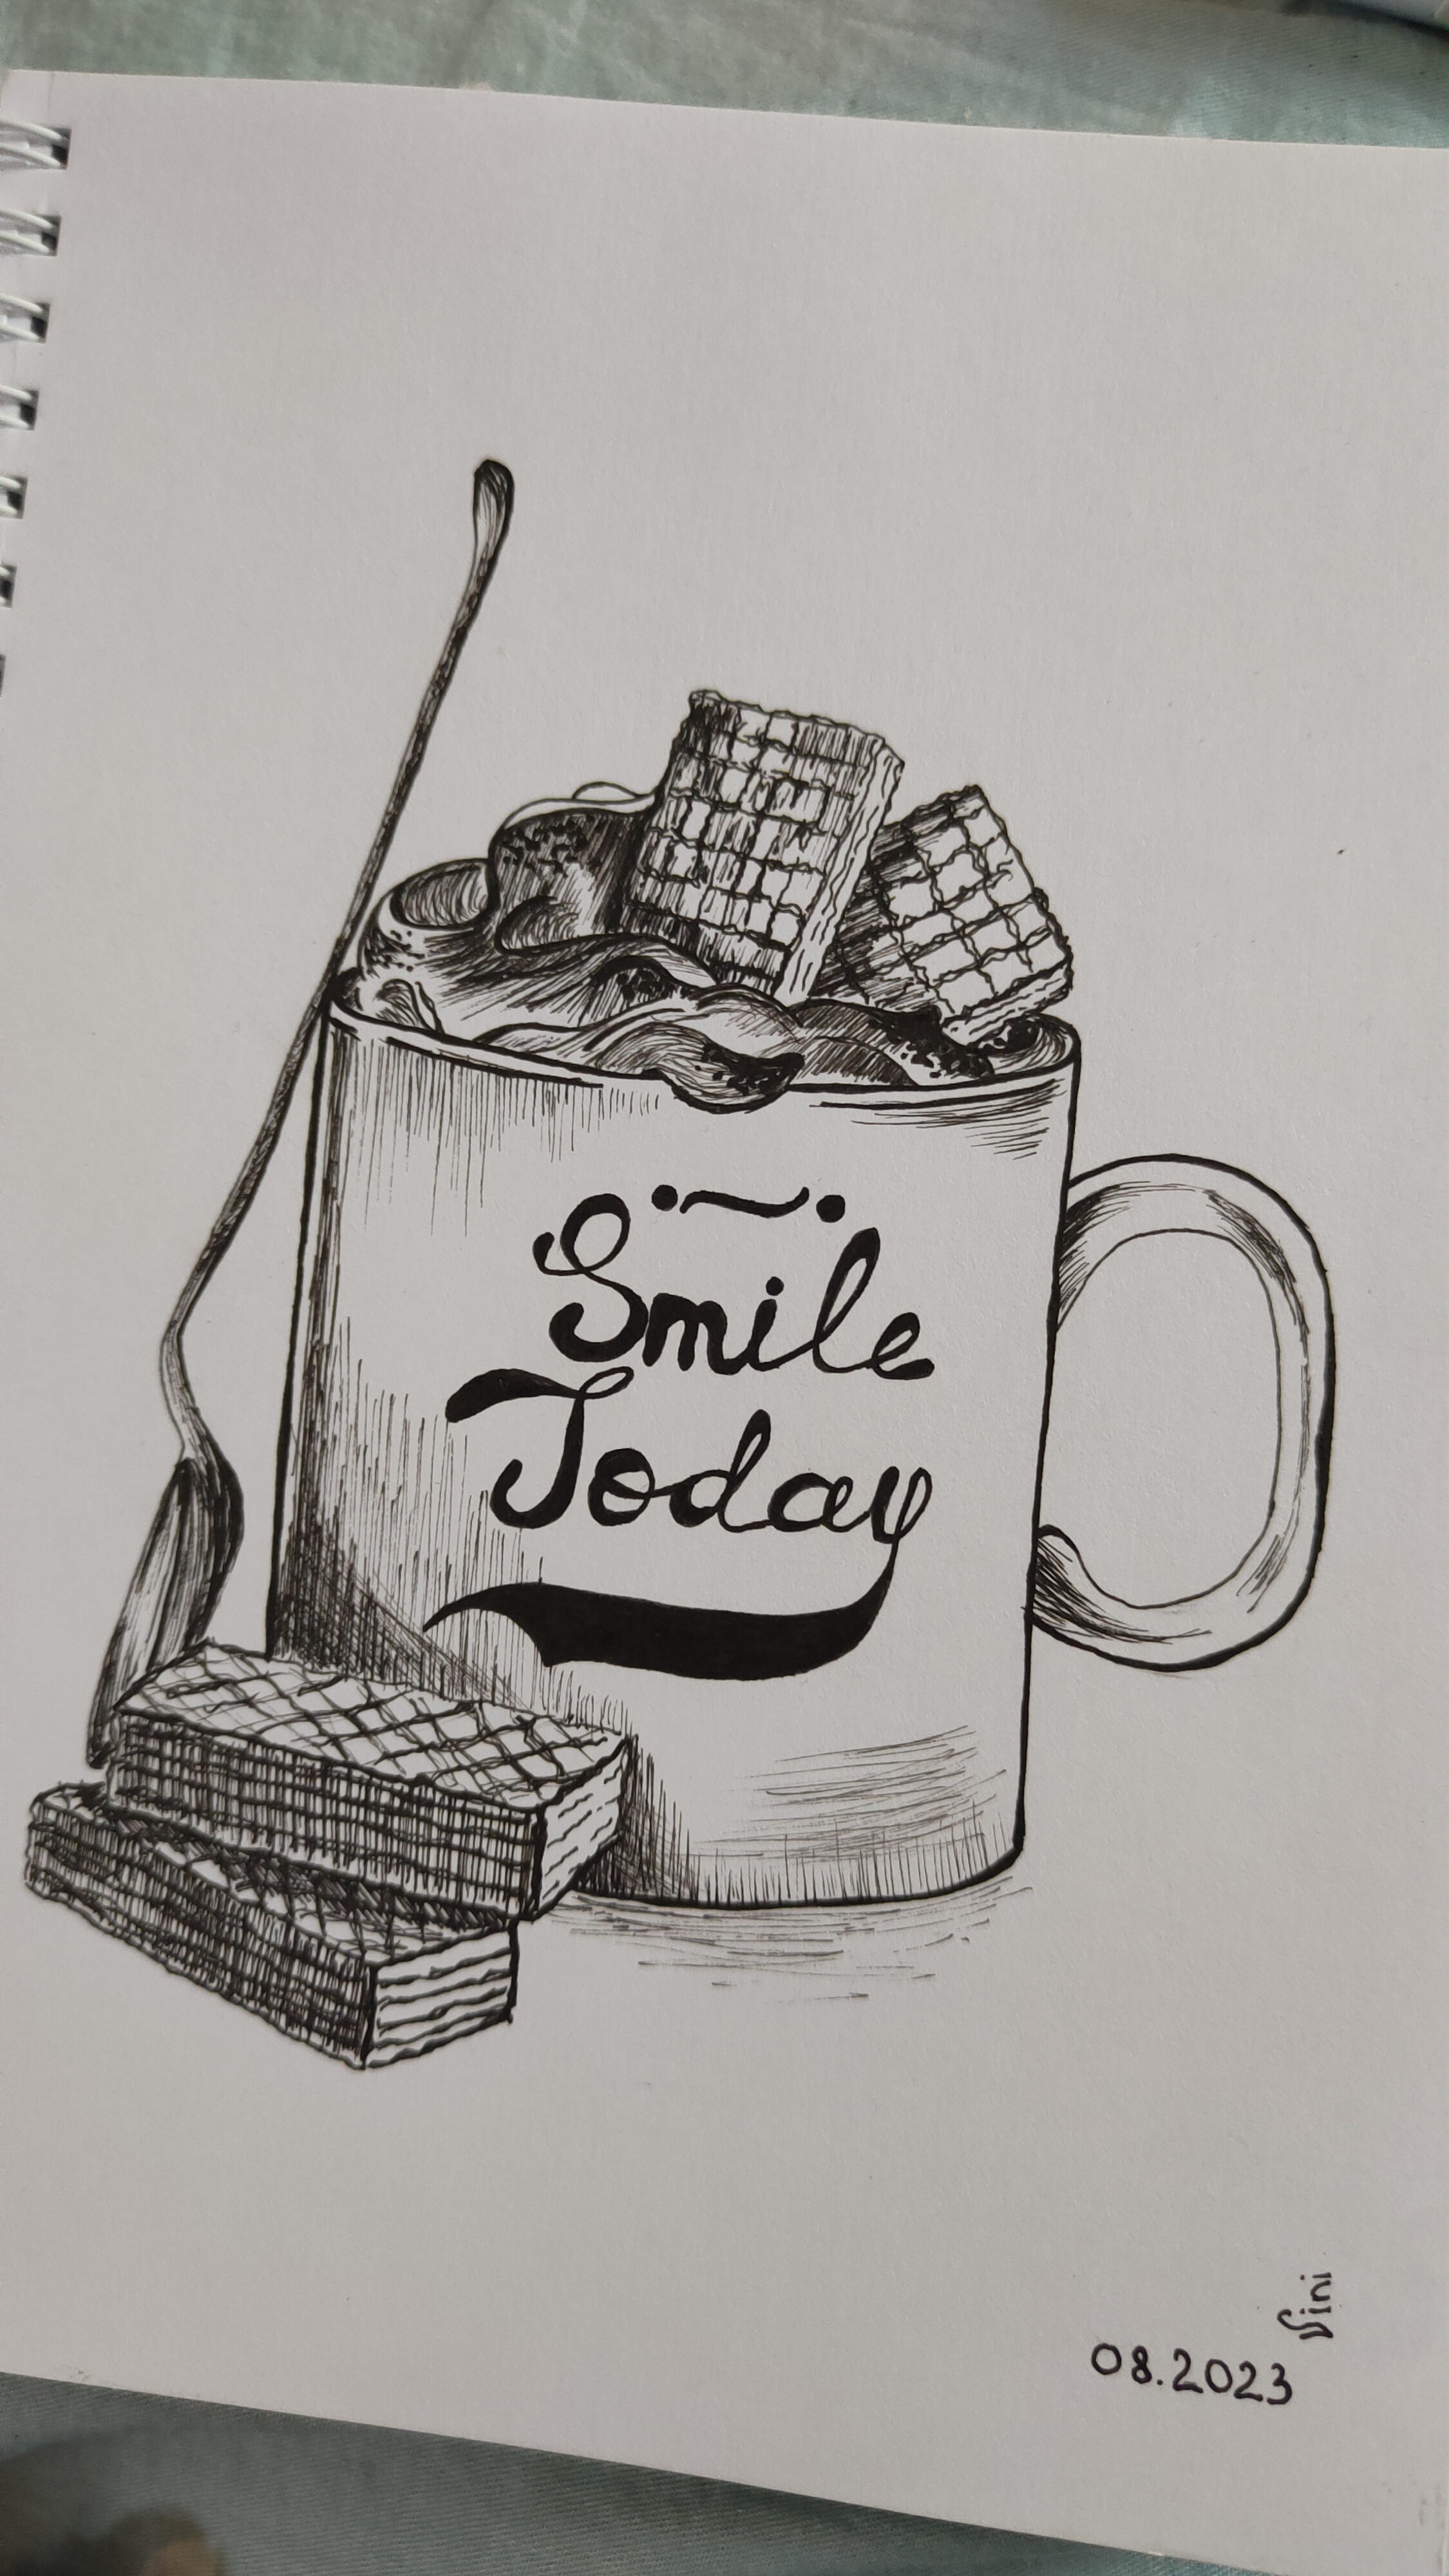 Smile
Today
Sini
08.2023